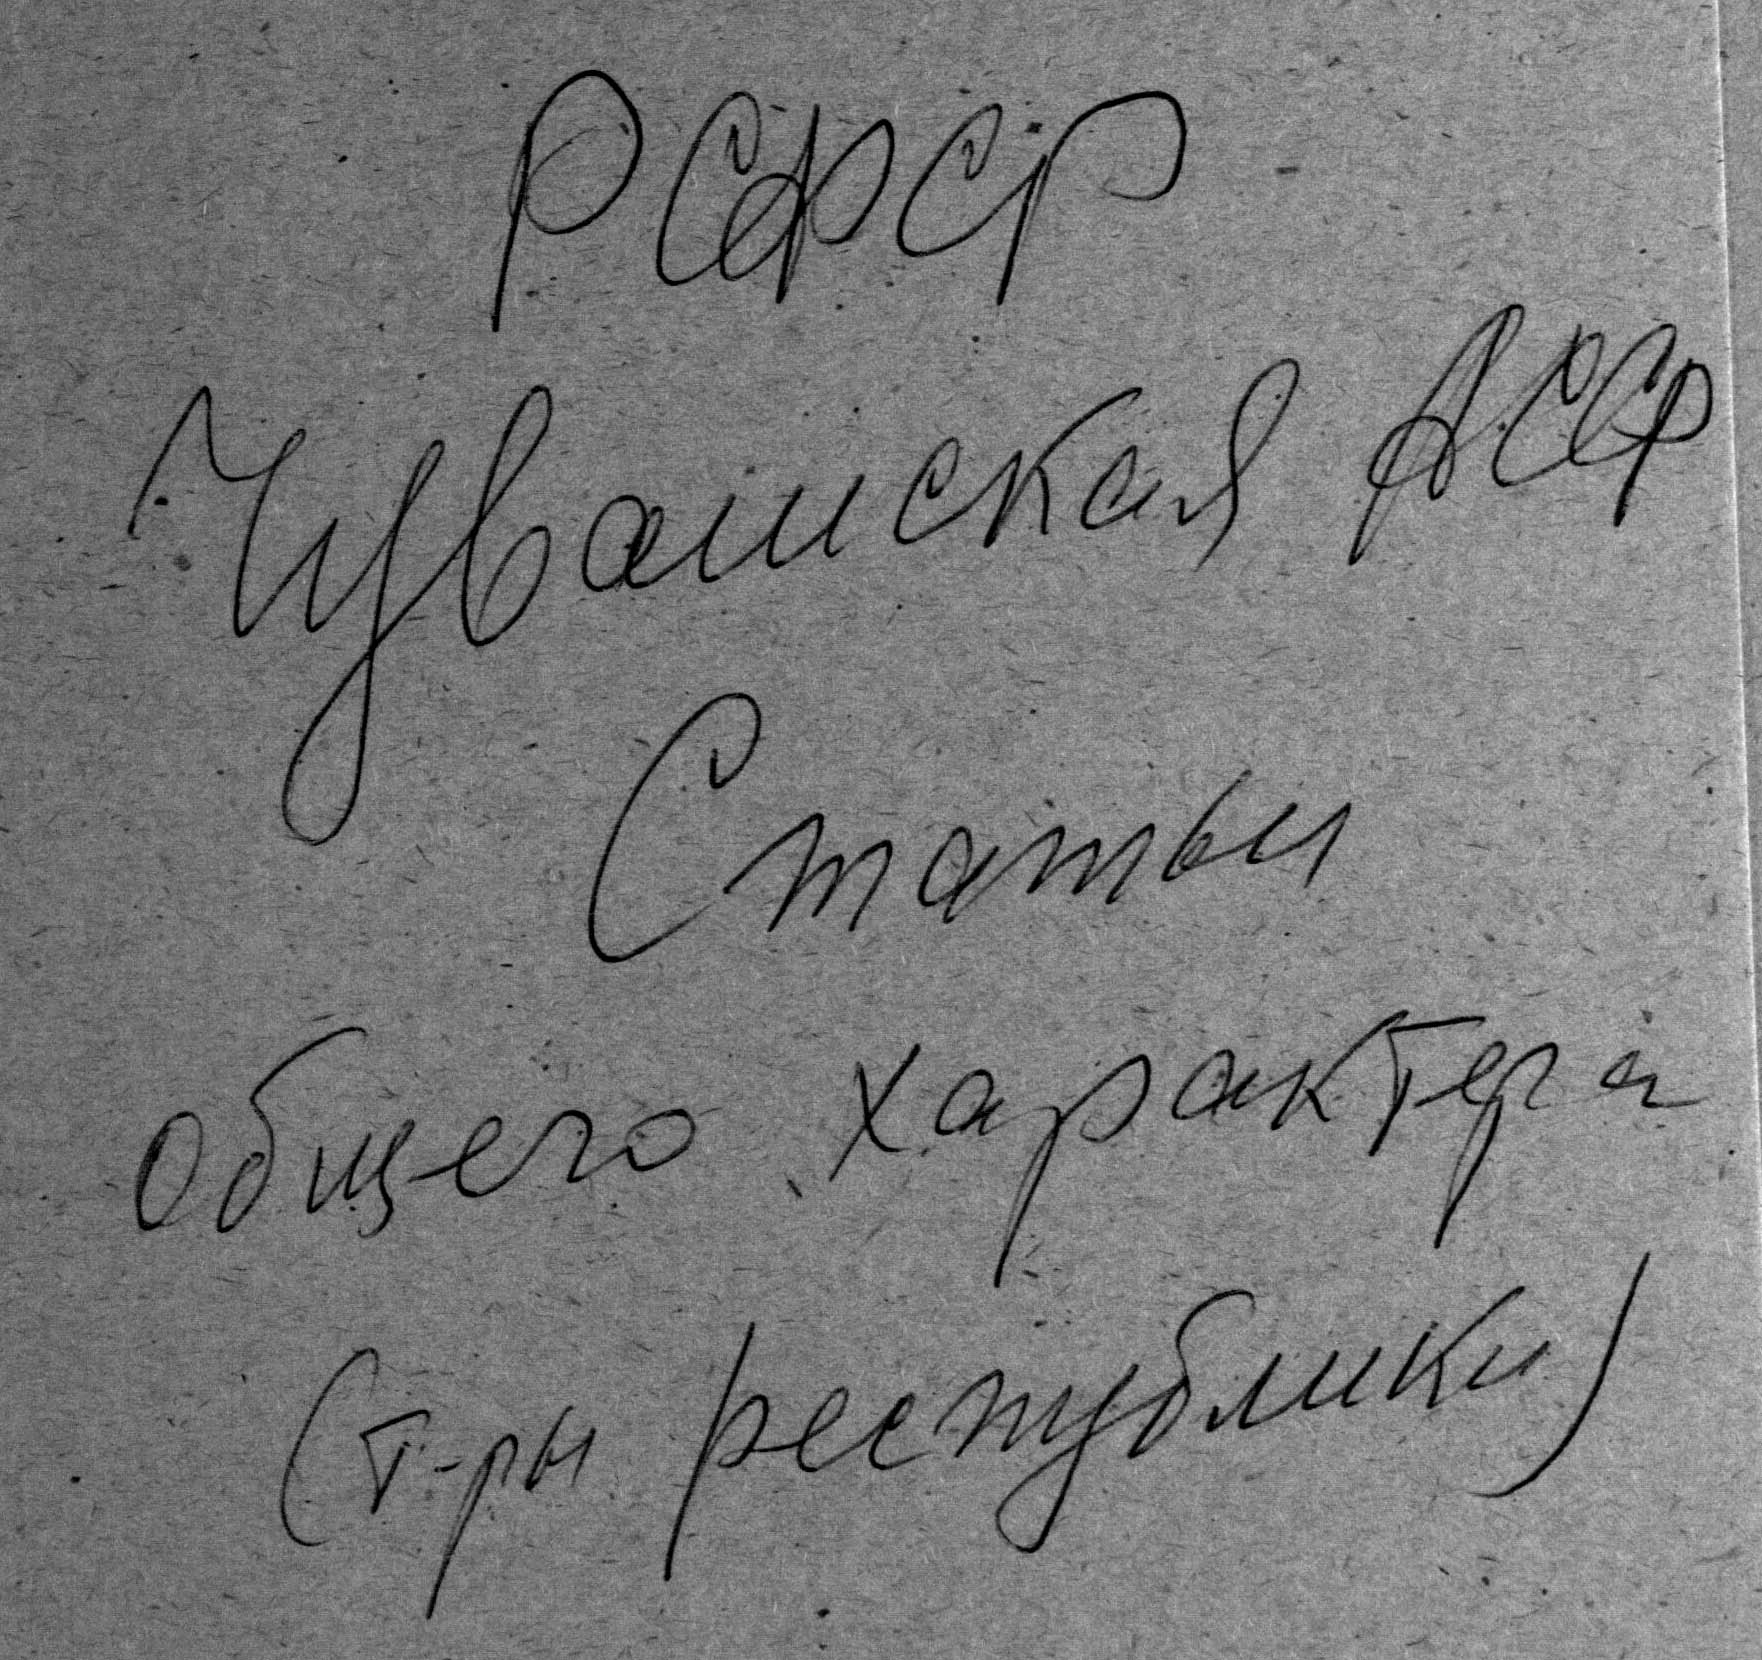 РСФСР
Чувашская АССР
Статьи
общего характера
(т-ры республики)